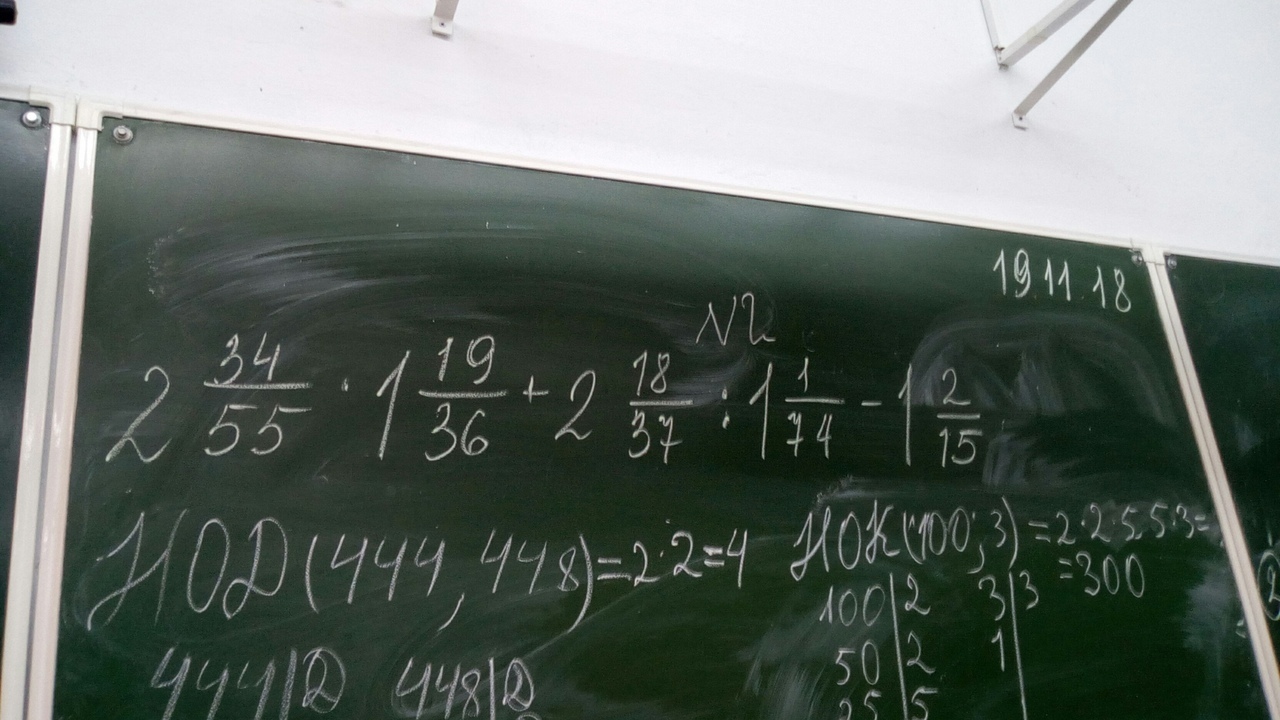 19.11.18
N2
2 34/55 · 1 19/36 + 2 18/37 : 1 1/74 - 1 2/15
НОД(444, 448)=2·2=4
НОК(100; 3)=2·2·5·5·3=
=300
444|2 448|2
100|2 3|3
50|2 1
25|5